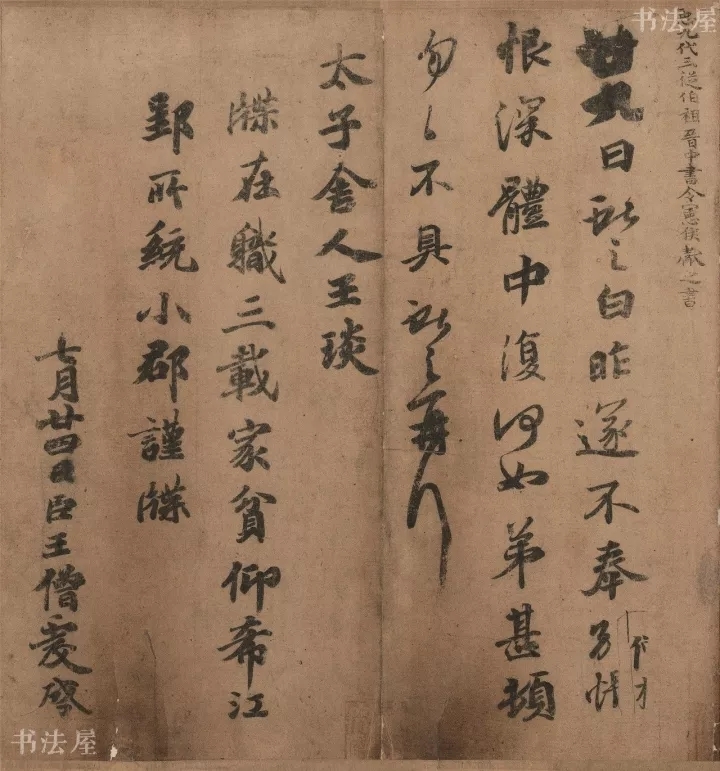 臣九代三從伯祖晉中書令憲侯獻之書
廿九日獻之白昨遂不奉別悵
恨深體中復何如弟甚頓
匆匆不具獻之再拜
太子舍人王琰
牒在職三載家貧仰希江
郢所統小郡謹牒
七月廿四日臣王僧虔啓
书法屋
书法屋